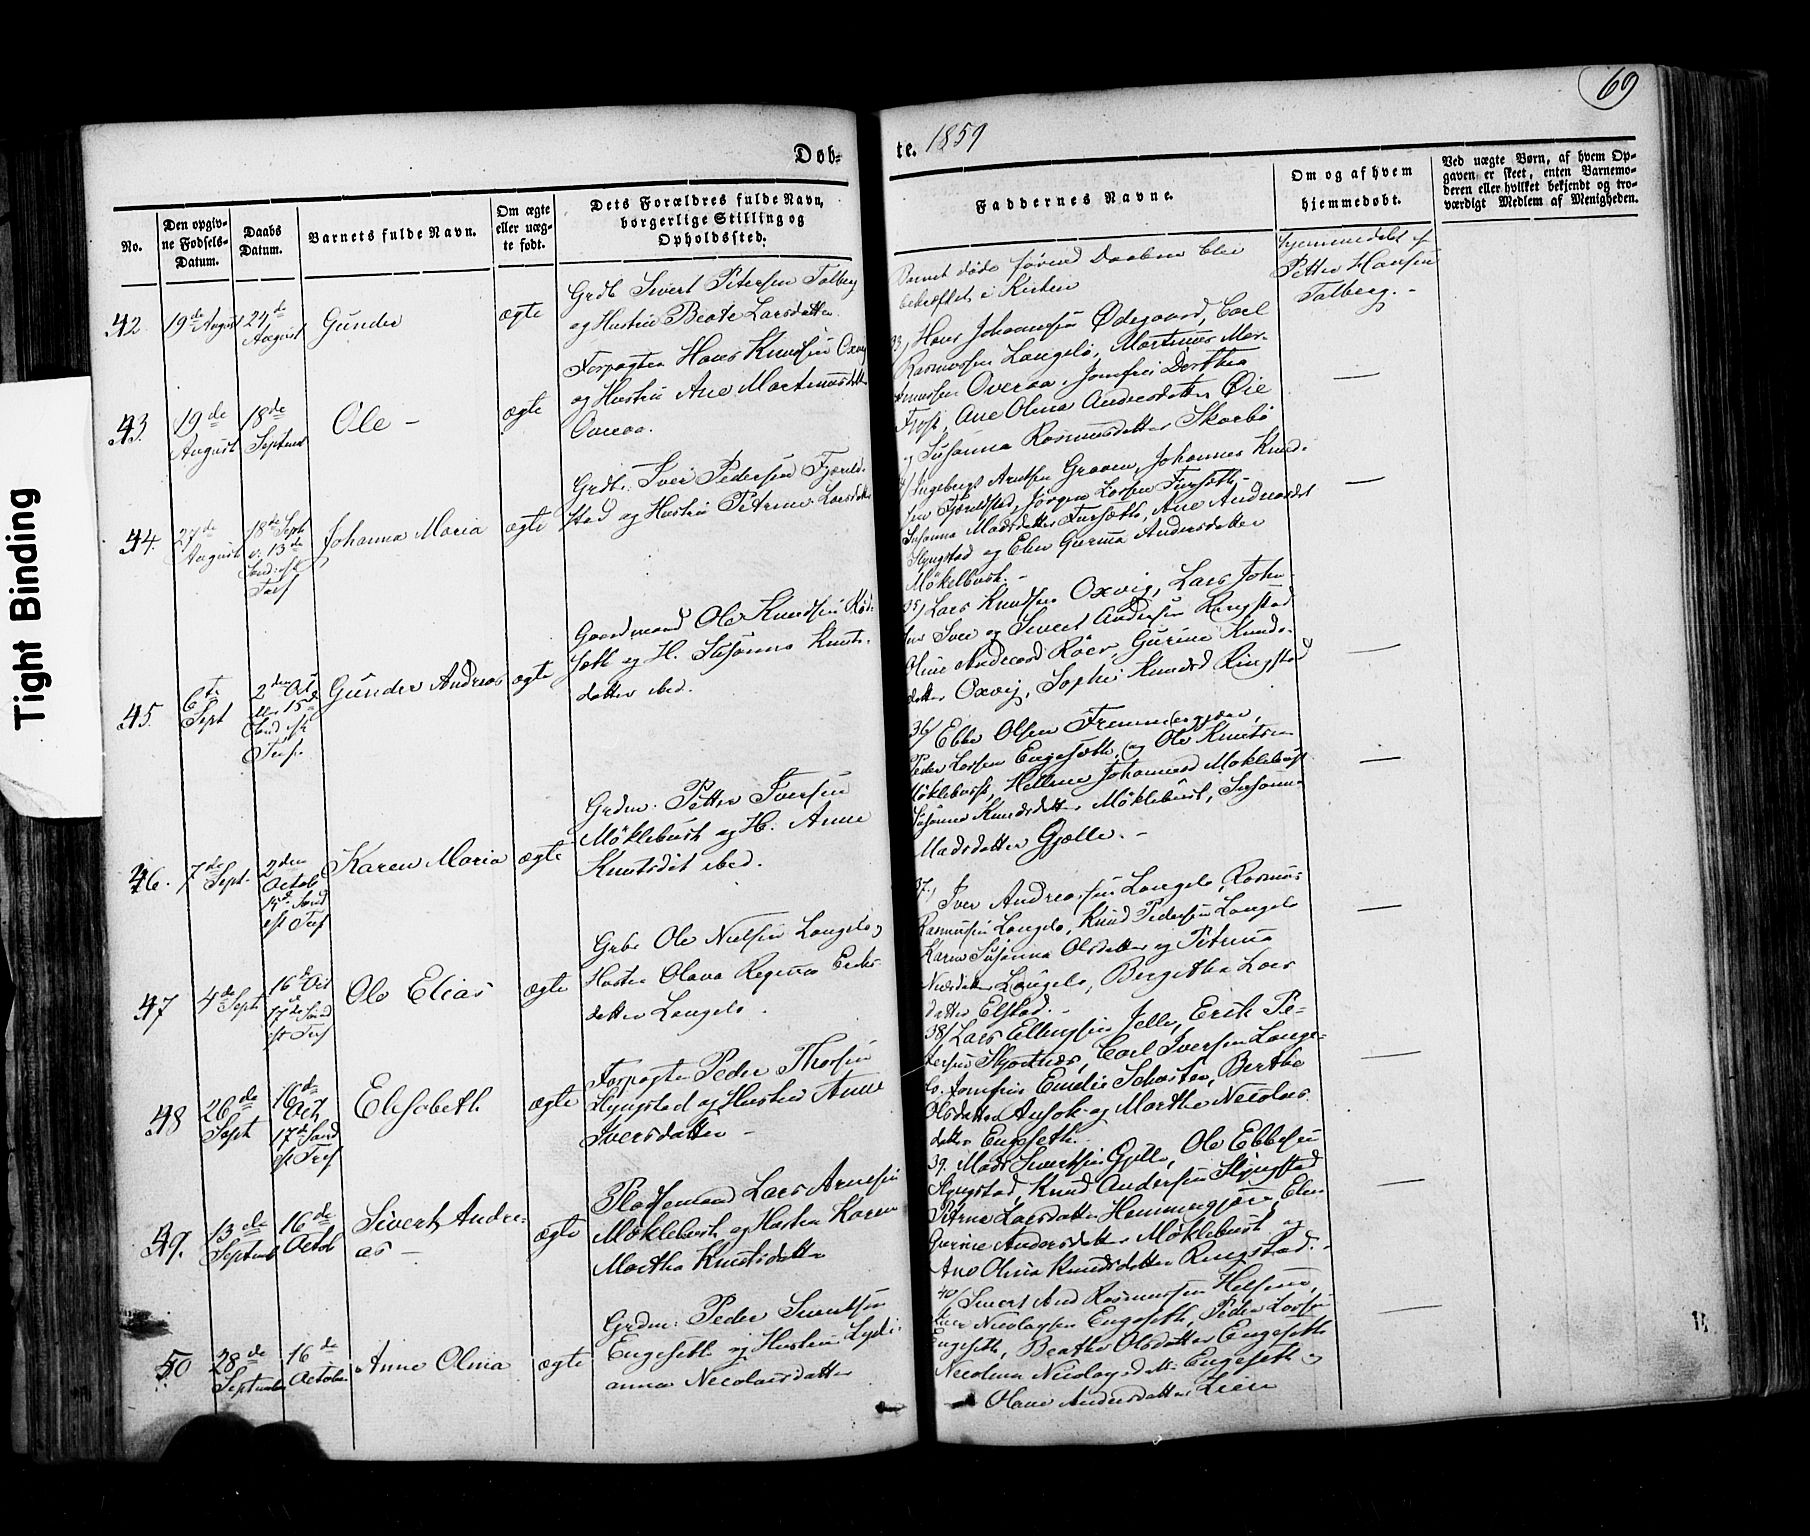 69
Døb-
te. 1859
No.
Den opgiv-
ne Fødsels-
Datum.
Daabs
Datum.
Barnets fulde Navn.
Om ægte
eller uæg-
te født.
Dets Forældres fulde Navn,
borgerlige Stilling og
Opholdssted.
Faddernes Navne.
Om og af hvem
hjemmedøbt.
Ved uægte Børn, af hvem Op-
gaven er skeet, enten Barnemo-
deren eller hvilket bekjendt og tro-
værdigt Medlem af Menigheden.
42.
19de August
24de
August
Gunder
ægte
Grdb. Sivert Petersen Talberg
og Hustru Beate Larsdatter
Barnet døde førend Daaben blev
bekræftet i Kirken
hjemmedøbt af
Petter Hansen
Talberg. -
43.
19de
August
18de
Septembr
Ole -
ægte
Forpagter Hans Knudsen Oxvig
og Hustru Ane Martinusdatter
Overaa.
33/ Hans Johannsen Ødegaard, Carl
Rasmussen Langelo, Martinus Mar-
tinussen Overaa, Jomfru Dorthea
Frost, Ane Olina Andreasdatter Øie
og Susanna Rasmusdatter Skarbø
44.
27de
August
18de Sept
v. 13de
Sønd: eft
Tref
Johanna Maria
ægte
Grdb. Iver Pedersen Fjørd-
stad og Hustru Petrine Larsdatter
34/ Ingebrigt Arntsen Graven, Johannes Knud-
sen Fjørdstad, Jørgen Larsen Fursæth -
Susanna Madsdatter Fursæth, Ane Andreasdt
Slyngstad og Elen Gurina Andersdatter
Møkelbust. -
45.
6te
Sept
2den Oct
15de
Sønd eft
Tref.
Gunder Andreas
ægte
Gaardmand Ole Knudsen Rød-
sæth og H. Susanna Knuts-
datter ibid.
35/ Lars Knudsen Oxvig, Lars Joha-
Iver og Sivert Andersen Ringstad
Oline Andreasd Røer, Gurine Knuds-
datter Oxvig, Sophie Knudsd Ringstad
46.
7de Sept.
2den
Octob
15de Sønd
eft Tref
Karen Maria
ægte
Grdm. Petter Iversen
Møklebust og H. Anne
Knutsdat ibid.
36/ Ebbe Olsen Fremmergjære,
Peder Larsen Engesæth, og Ole Knutsen
Møklebust, Hellene Johannesd Møklebust
Susanna Knudsdatter Møklebust, Susanna
Madsdatter Gjælle. -
47
4de Sept
16de Oct
17de Sønd
eft Tref
Ole Elias
ægte
Grbr Ole Nielsen Langelo,
Hustru Olava Regina Eriks-
datter Langelo.
37./ Iver Andreassen Langelo, Rasmus
Rasmusen Langelo, Knud Pedersen Langelo
Karen Susanna Olsdatter og Petrina
Langelo, Bergitha Lars
datter Elstad. -
48
26de
Sept
16de
Oct
17de Sønd
eft Tref
Elisabeth
ægte
Forpagter Peder Thorsen
Slyngstad og Hustru Anne
Iversdatter -
38/ Lars Ellingsen Jelle, Erik Pe-
tersen Skjortnes, Carl Iversen Lange-
lo, Jomfru Emelie Schaster, Berthe
Olsdatter Ansok og Marthe Nicolais-
datter Engeseth.
49.
13de
September
16de
Octob
Sivert Andre-
as -
ægte
Pladsemand Lars Arnesen
Møklebust og Hustru Karen
Martha Knutsdatter
39. Mads Sivertsen Gjelle, Ole Ebbesen
Slyngstad, Knud Andersen Slyngstad
Petrine Larsdatter Hemmingjære, Elen
Gurine Andersdatter Møklebust og
Ane Olina Knudsdatter Ringstad. -
50
28de
September
16de
October
Anne Olina
ægte
Grdm. Peder Sivertsen
Engeseth og Hustru Lydi-
anna Nicolaisdatter
40/ Sivert And Rasmussen Helsem,
Lars Nicolaysen Engeseth, Peder Larsen
Engeseth, Beathe Olsdatter Engeseth
Nicolina Nicolaysdatter Engeseth og
Olave Andersdatter Lien
Tight Binding